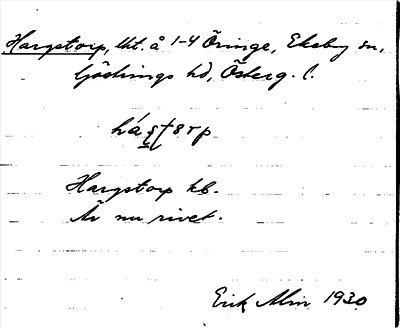 Hargstorp, lht. å 1-4 Öringe, Ekeby sn,
Göstrings hd, Österg. l.
Hargstorp kb.
Är nu rivet.
Erik Alin 1930